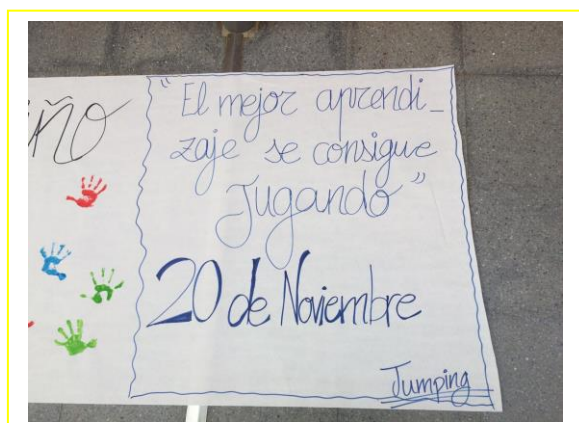 iño
"El mejor aprendi_
zaje se consigue
Jugando"
20 de Noviembre
Jumping